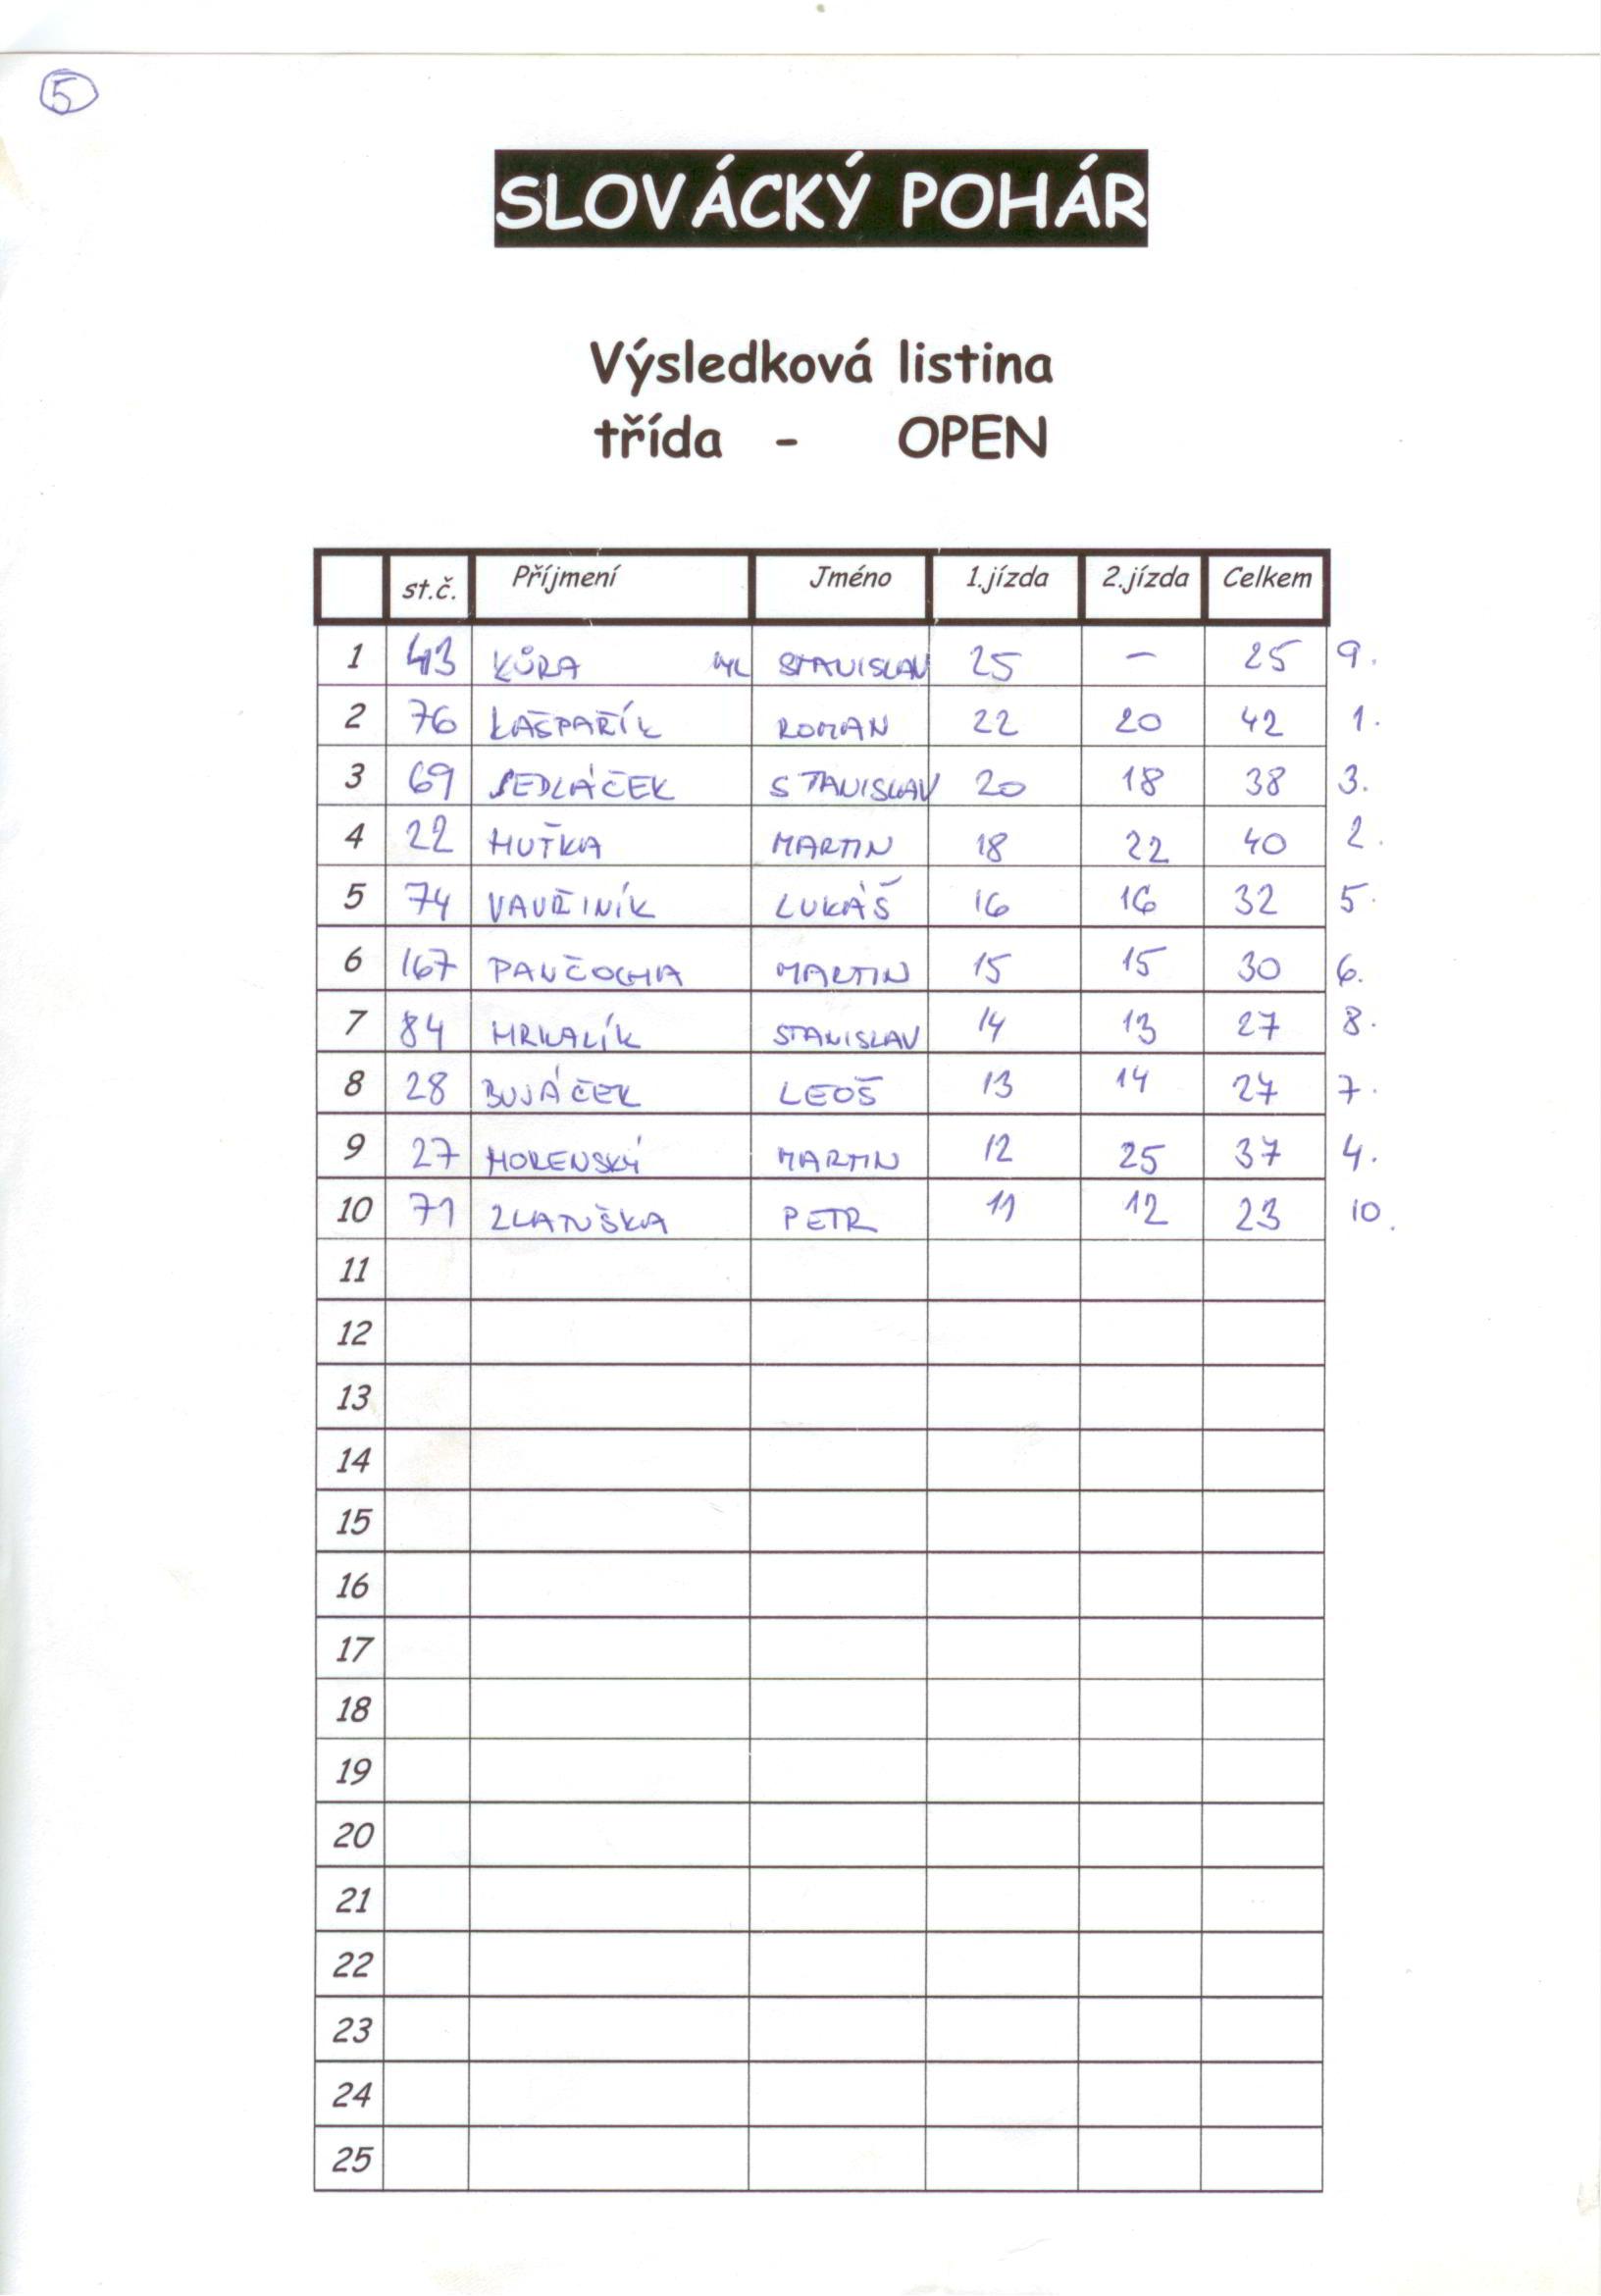 5
SLOVÁCKÝ POHÁR
Výsledková listina
třída - OPEN
st.č. Příjmení Jméno 1.jízda 2.jízda Celkem
1 43 KŮRA STANISLAV 25 - 25 9.
2 76 KAŠPAŘÍK ROMAN 22 20 42 1.
3 69 SEDLÁČEK STANISLAV 20 18 38 3.
4 22 HUŤKA MARTIN 18 22 40 2.
5 74 VAVŘINÍK LUKÁŠ 16 16 32 5.
6 167 PANČOCHA MARTIN 15 15 30 6.
7 84 HRKALÍK STANISLAV 14 13 27 8.
8 28 BUJÁČEK LEOŠ 13 14 27 7.
9 27 HORENSKÝ MARTIN 12 25 37 4.
10 71 ZLATUŠKA PETR 11 12 23 10.
11
12
13
14
15
16
17
18
19
20
21
22
23
24
25